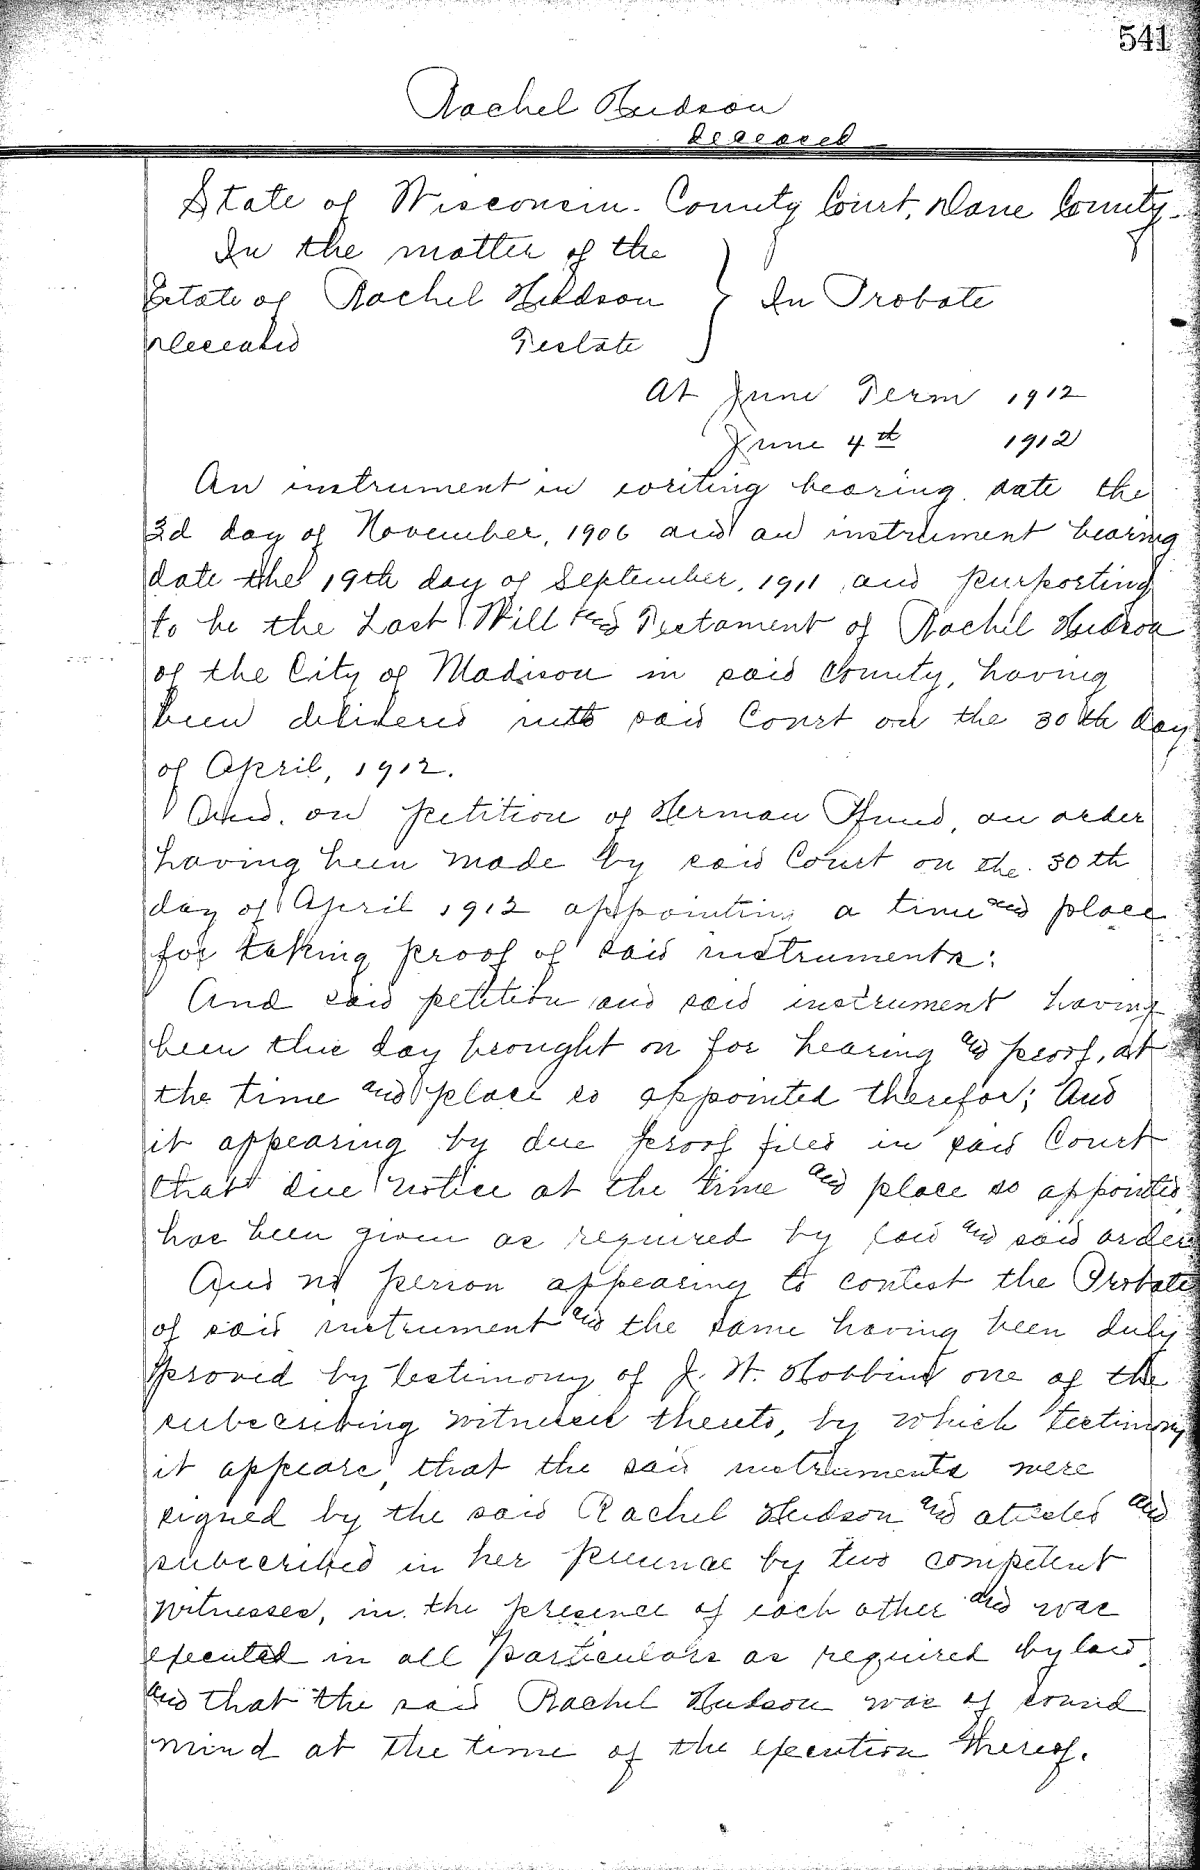 541
Rachel Hudson
deceased
State of Wisconsin. County Court, Dane County.
In the matter of the
Estate of Rachel Hudson } In Probate
deceased Testate
At June Term 1912
June 4th 1912
An instrument in writing bearing date the
3d day of November, 1906 and an instrument bearing
date the 19th day of September, 1911 and purporting
to be the Last Will and Testament of Rachel Hudson
of the City of Madison in said County, having
been delivered into said Court on the 30th day
of April, 1912.
And, on petition of Herman Pfund, an order
having been made by said Court on the 30th
day of April 1912 appointing a time and place
for taking proof of said instruments:
And said petition and said instrument having
been this day brought on for hearing and proof, at
the time and place so appointed therefor; And
it appearing by due proof filed in said Court
that due notice at the time and place so appointed
has been given as required by law and said order
And no person appearing to contest the Probate
of said instrument and the same having been duly
proved by testimony of J. W. Hobbins one of the
subscribing witnesses thereto, by which testimony
it appears, that the said instruments were
signed by the said Rachel Hudson and attested and
subscribed in her presence by two competent
witnesses, in the presence of each other and was
executed in all particulars as required by law,
and that the said Rachel Hudson was of sound
mind at the time of the execution thereof.